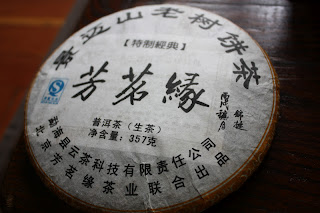 山老村饼茶
【特制經典】
芳茗緣
普洱茶（生茶）
净含量：357克
勐海县云茶科技有限责任公司
北京芳茗缘茶业联合出品